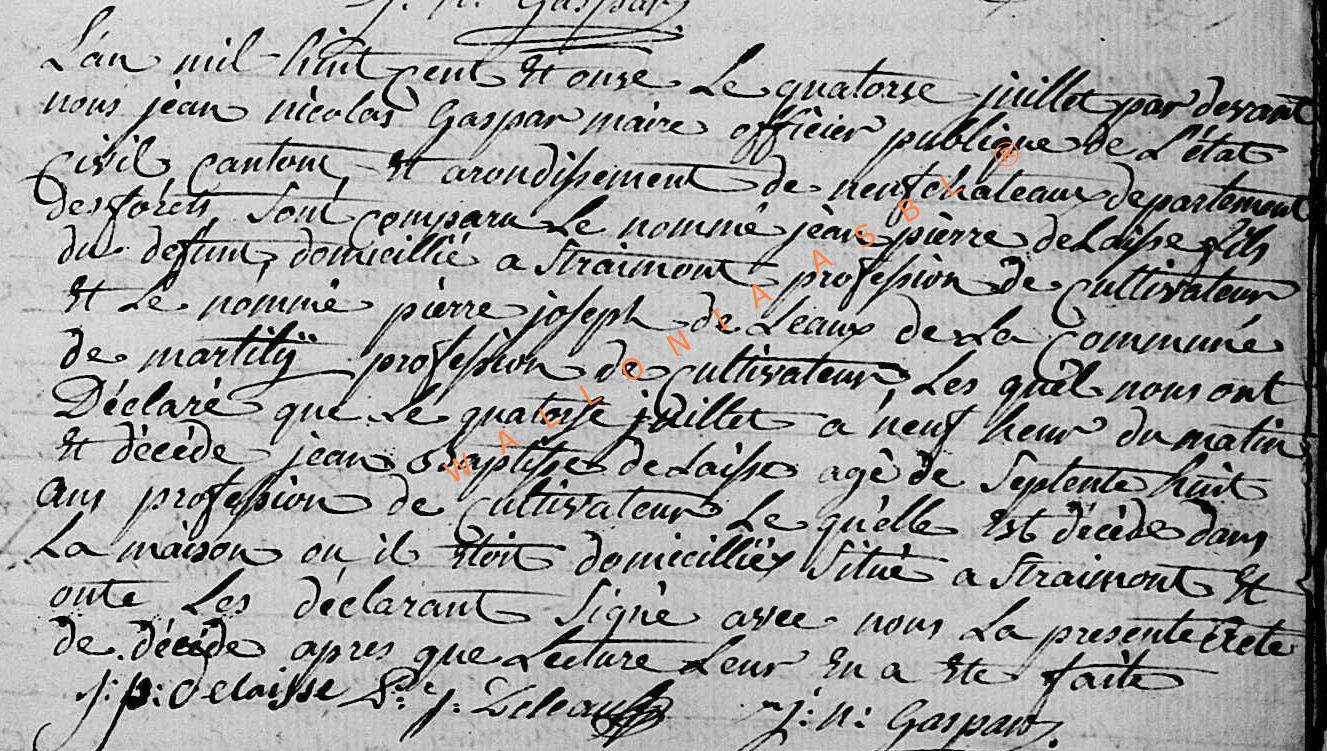 J: n: Gaspar
L'an mil huit cent Et onse Le quatorse juillet par devant
nous jean nicolas Gaspar maire officier publique de L'état
civil canton Et arondissement de neufchateaux departement
des forêts Sont comparu Le nommé jean pierre delaisse fils
du defunt domicillié a Straimont profession de cultivateur
Et Le nommé pierre joseph de Leaux de La Commune
de martilÿ profession de cultivateur, Les quèl nous ont
Déclaré que Le quatorse juillet a neuf heur du matin
Et décéde jean Baptiste delaisse agè de Septente huit
ans profession de Cultivateur Le quèlle Est décédé dans
La maison ou il Etoit domicilliéz Situé a Straimont Et
onte Les déclarant Signè avec nous La presente Acte
de décéde apres que Lecture Leur En a Ete faite
j: p: delaisse Pre j: Deleaux j: n: Gaspar
WALLONIA ASBL ®